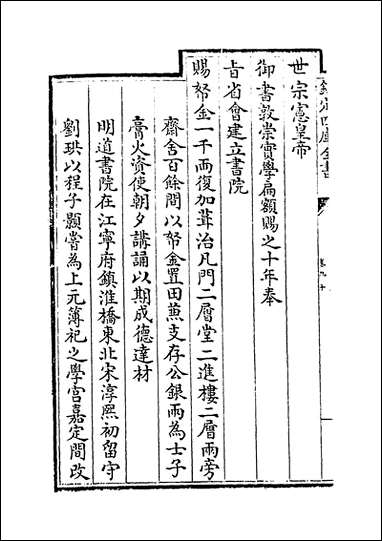 欽定四庫全書
卷九十
世宗憲皇帝
御書敦崇實學扁額賜之十年奉
旨省會建立書院
賜帑金一千兩復加葺治凡門二層堂二進樓二層兩旁
齋舍百餘間以帑金置田兼支存公銀兩為士子
膏火資使朝夕講誦以期成德達材
明道書院在江寧府鎮淮橋東北宋淳熙初留守
劉珙以程子顥嘗為上元簿祀之學宮嘉定間改